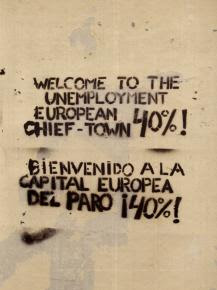 WELCOME TO THE
UNEMPLOYMENT
EUROPEAN
CHIEF-TOWN 40%!
BIENVENIDO A LA
CAPITAL EUROPEA
DEL PARO ¡40%!